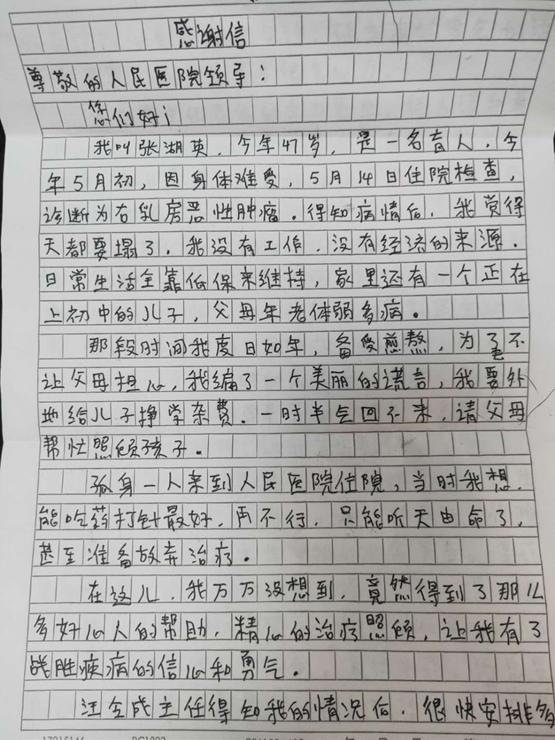 感谢信
尊敬的人民医院领导：
您们好！
我叫张湖英，今年47岁，是一名盲人，今
年5月初，因身体难受，5月14日住院检查，
诊断为右乳房恶性肿瘤。得知病情后，我觉得
天都要塌了。我没有工作，没有经济的来源。
日常生活全靠低保来维持，家里还有一个正在
上初中的儿子，父母年老体弱多病。
那段时间我度日如年，备受煎熬，为了不
让父母担心，我编了一个美丽的谎言，我要外
地给儿子挣学杂费。一时半气回不来，请父母
帮忙照顾孩子。
孤身一人来到人民医院住院，当时我想，
能吃药打针最好，再不行，只能听天由命了，
甚至准备放弃治疗。
在这儿，我万万没想到，竟然得到了那么
多好心人的帮助，精心的治疗照顾，让我有了
战胜疾病的信心和勇气。
汪全成主任得知我的情况后，很快安排多